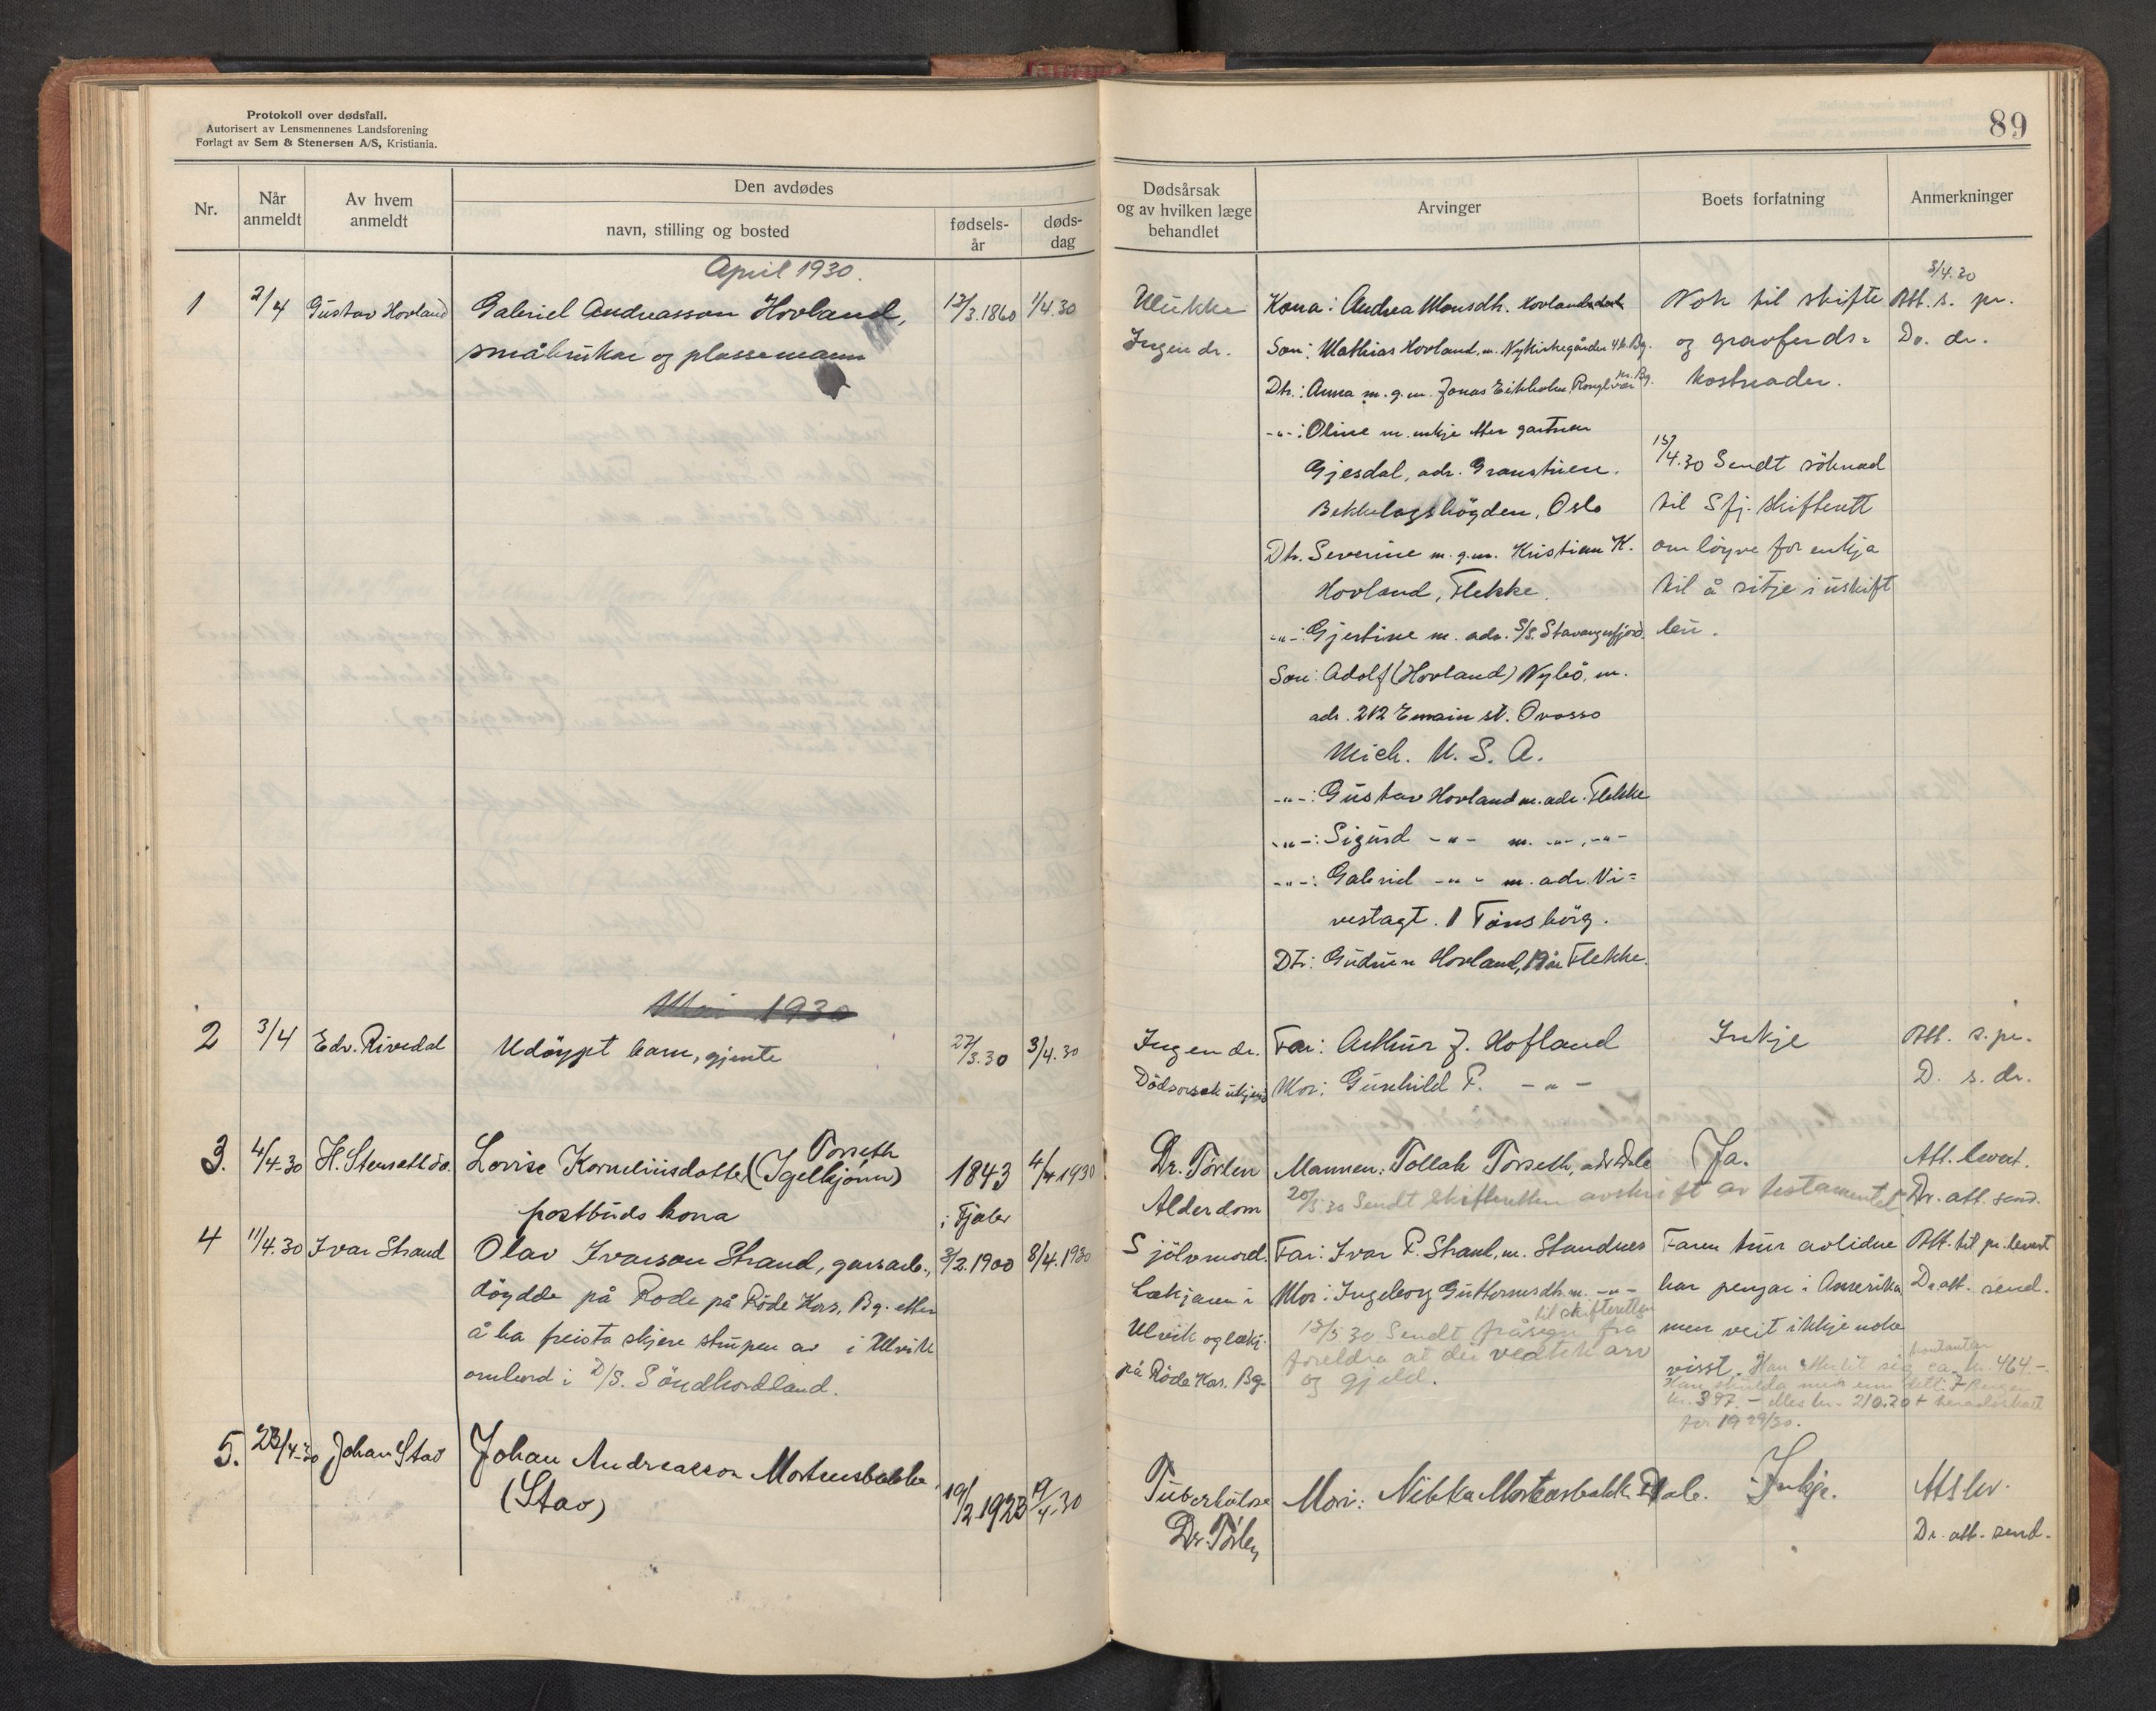 Protokoll over dødsfall.
Autorisert av Lensmennenes Landsforening
Forlagt av Sem & Stenersen A/S, Kristiania.
Nr.
Når anmeldt
Av hvem anmeldt
Den avdødes
navn, stilling og bosted
fødsels-år
døds-dag
April 1930.
1 2/4 Gustav Hovland Gabriel Andreasson Hovland, 12/3.1860 1/4.30
småbrukar og plassemann
Mai 1930
2 3/4 Edv. Rivedal Udøypt barn, gjente 27/3.30 3/4.30
Torseth
3. 4/4.30 H. Stensetlö. Lovise Korneliusdotter (Igelkjønn) 1843 4/4 1930
postbuds kona i Fjaler
4 11/4.30 Ivar Strand Olav Ivarson Strand, garsarb., 3/2.1900 8/4.1930
döydde på Rode på Röde Kors, Bg. etter
å ha freista skjere strupen av i Ulvik
ombord i D/S. Söndhordland.
5. 23/4-30 Johan Stav Johan Andreasson Mortensbakke
(Stav) 19/2.1923 19/4-30
89
Dødsårsak
og av hvilken læge
behandlet
Arvinger
Boets forfatning
Anmerkninger
3/4.30
Ulukke Kona: Andrea Monsdtr. Hovland Nok til skifte Att. s. pr.
Ingen dr. Son: Mathias Hovland, m. Nykirkegården 4b. Bg. og gravferds- Do. dr.
Dtr.: Anna m. g.m. Jonas Eikholm, Ronglevær pr. Bg. kostnader.
-"-: Oline m. enkje etter gartner
Gjesdal, adr. Granstuen. 15/4.30 Sendt söknad
Bekkelagshögden, Oslo til Sfj. skifterett
Dtr. Severine m. g.m. Kristian K. om löyve for enkja
Hovland, Flekke. til å sitje i uskift
-"-: Gjertine m. adr. S/S. Stavangerfjord. bu.
Son: Adolf (Hovland) Nybö, m.
adr. 212 E main st. Ovosso
Mich. U. S. A.
-"-: Gustav Hovland m. adr. Flekke
-"-: Sigurd -"- m. -"-, -"-
-"-: Gabriel -"- m. adr. Vi-
vestagt. 1 Tönsberg.
Dtr: Gudrun Hovland, 19 år Flekke.
Ingen dr. Far: Arthur J. Hofland Inkje Att. s. pr.
Dödsorsak ukjend Mor: Gunhild P. -"- D. s. dr.
Dr. Tørlen Mannen: Tollak Torseth, adr Dale Ja. Att. levert.
Alderdom 20/5.30 Sendt skifteretten avskrift av testamentet Dr. att. send.
Sjölvmord. Far: Ivar P. Strand, m. Standnes Faren trur avlidne Att. til pr. levert
Lækjaren i Mor: Ingeborg Guttormsdtr. m. -"- har pengar i Amerika Dr. att. send.
til skifteretten
Ulvik og lækj. 12/5 30 Sendt fråsegn frå men veit ikkje noko
på Röde Kors. Bg. foreldra at dei vedtek arv visst. Han etterlet seg kontanter ca. kr. 464.-
og gjeld. Han skulda
kr. 397.- elles kr. 210.20 +
for 1929/30.
Tuberkulose Mor: Nikka Mortensbakk Dale. Inkje. Att lev.
Dr. Tørlen Dr. att. send.